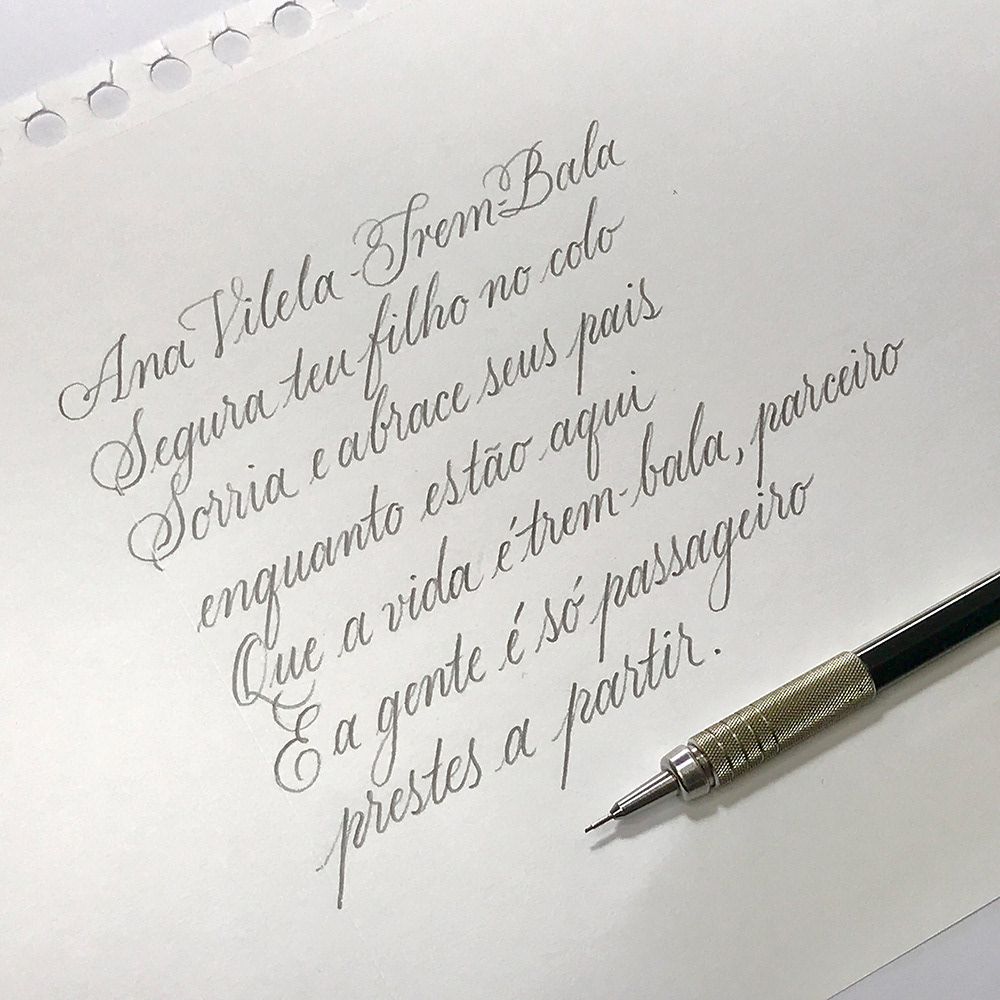 Ana Vilela - Trem-Bala
Segura teu filho no colo
Sorria e abrace seus pais
enquanto estão aqui
Que a vida é trem-bala, parceiro
E a gente é só passageiro
prestes a partir.